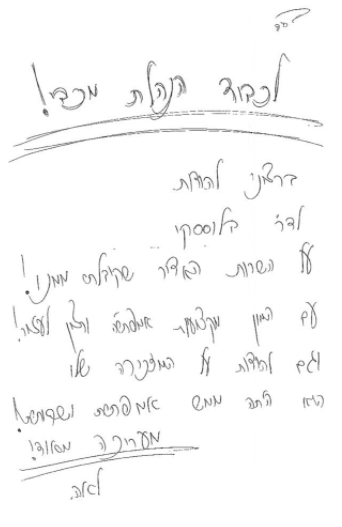 בס"ד
לכבוד הנהלת מכבי!
ברצוני להודות
לדר' בלוססקי
על השרות האדיר שקיבלתי ממנו!
עם המון מקצועיות אמפתיה ורצון לעזור!
וגם להודות על המזכירה שלו
היא היתה ממש אמפתית ושרותית!
מעריכה מאוד!
לאה.